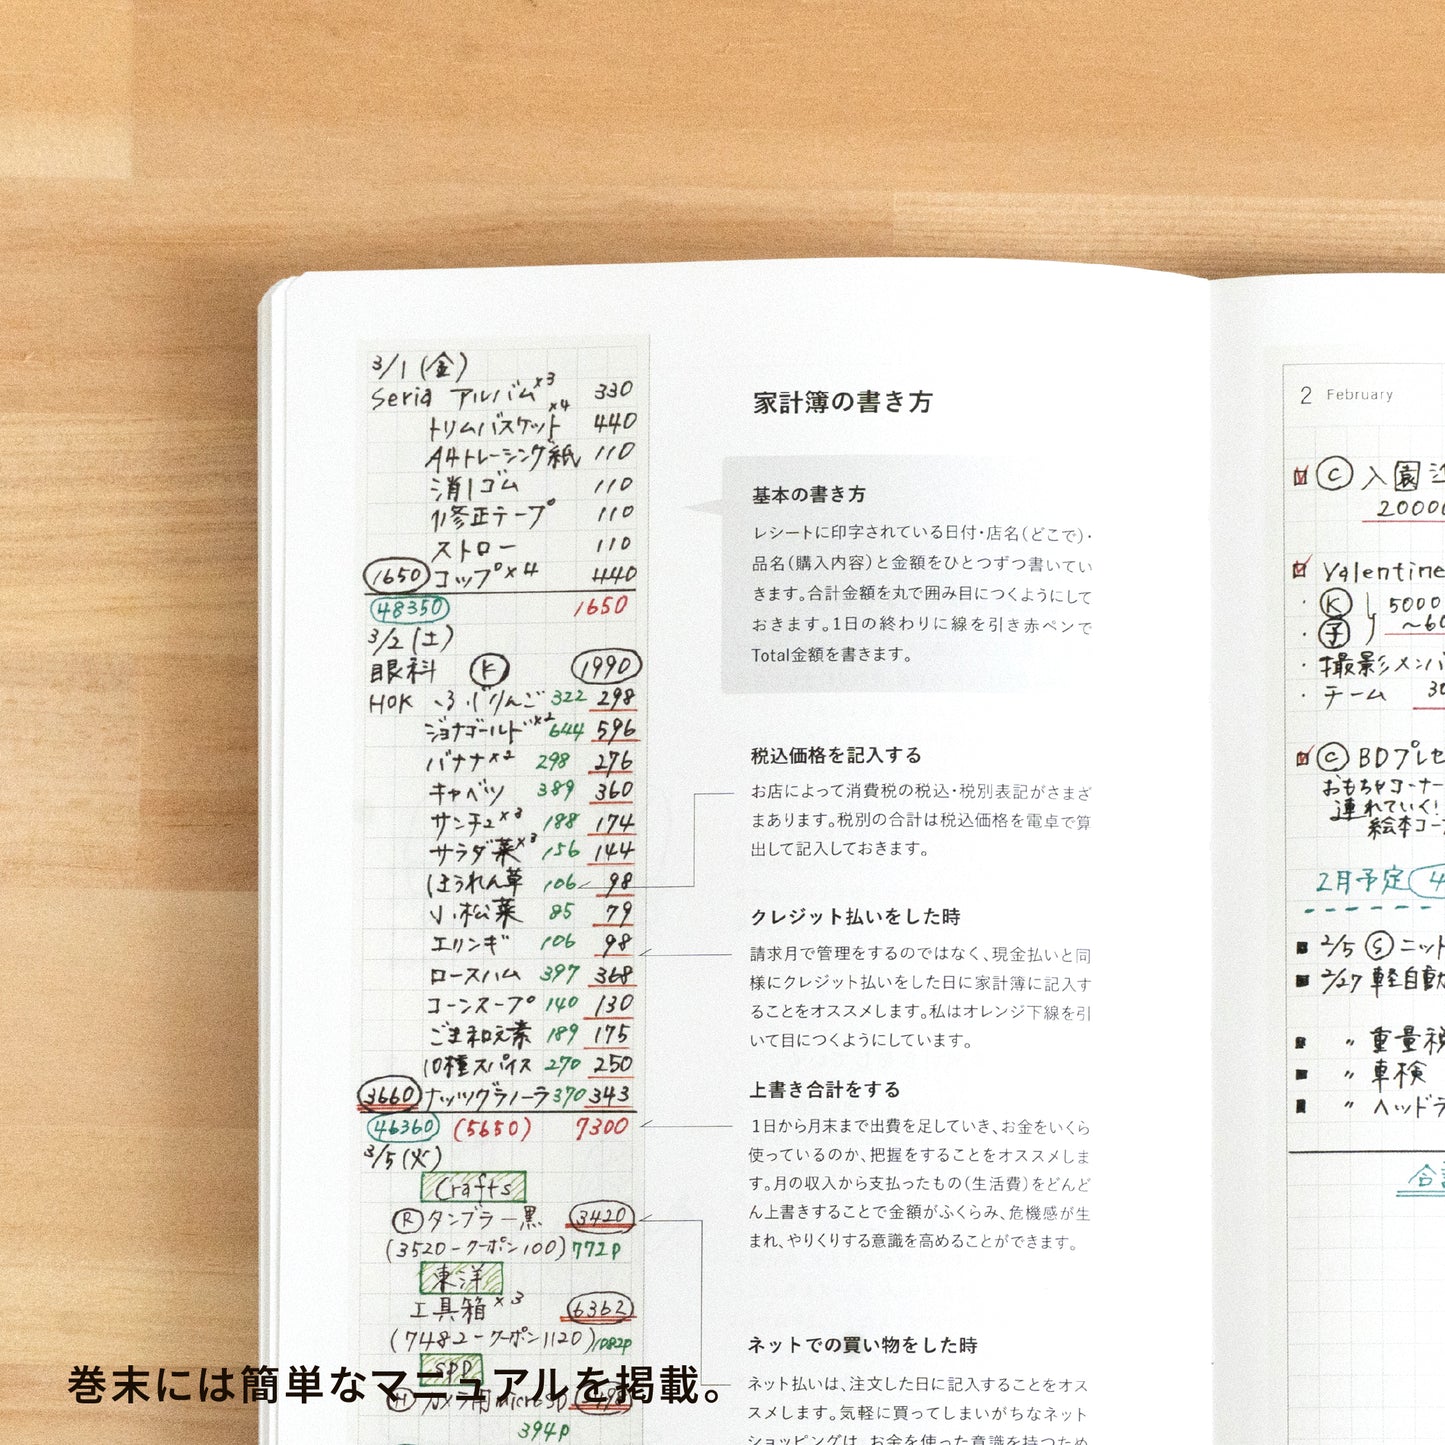 3/1(金)
Seria アルバム×3 330
トリムバスケット×4 440
A4トレーシング紙 110
消しゴム 110
修正テープ 110
ストロー 110
1650 コップ×4 440
48350 1650
3/2(土)
眼科 K 1990
HOK ふじりんご 322 298
ジョナゴールド×2 644 596
バナナ×2 298 276
キャベツ 389 360
サンチュ×3 188 174
サラダ菜×3 156 144
ほうれん草 106 98
小松菜 85 79
エリンギ 106 98
ロースハム 397 368
コーンスープ 140 130
ごま和え素 189 175
10種スパイス 270 250
3660 ナッツグラノーラ 370 343
46360 (5650) 7300
3/5(火)
Crafts
R タンブラー黒 3420
(3520-クーポン100) 772P
東洋
工具箱×3 6362
(7482-クーポン1120) 1082P
SPP
カメラ用microSD
394P
家計簿の書き方
基本の書き方
レシートに印字されている日付・店名(どこで)・
品名(購入内容)と金額をひとつずつ書いてい
きます。合計金額を丸で囲み目につくようにして
おきます。1日の終わりに線を引き赤ペンで
Total金額を書きます。
税込価格を記入する
お店によって消費税の税込・税別表記がさまざ
まあります。税別の合計は税込価格を電卓で算
出して記入しておきます。
クレジット払いをした時
請求月で管理をするのではなく、現金払いと同
様にクレジット払いをした日に家計簿に記入す
ることをオススメします。私はオレンジ下線を引
いて目につくようにしています。
上書き合計をする
1日から月末まで出費を足していき、お金をいくら
使っているのか、把握をすることをオススメしま
す。月の収入から支払ったもの(生活費)をどんど
ん上書きすることで金額がふくらみ、危機感が生
まれ、やりくりする意識を高めることができます。
ネットでの買い物をした時
ネット払いは、注文した日に記入することをオス
スメします。気軽に買ってしまいがちなネット
ショッピングは、お金を使った意識を持つため
2 February
C 入園
20000
Valentine
K 5000
子 〜60
・撮影メンバ
・チーム 30
C BDプレゼ
おもちゃコーナー
連れていく!
絵本コー
2月予定 4
2/5 S ニット
2/27 軽自動
〃 重量税
〃 車検
〃 ヘッドラ
合計
巻末には簡単なマニュアルを掲載。